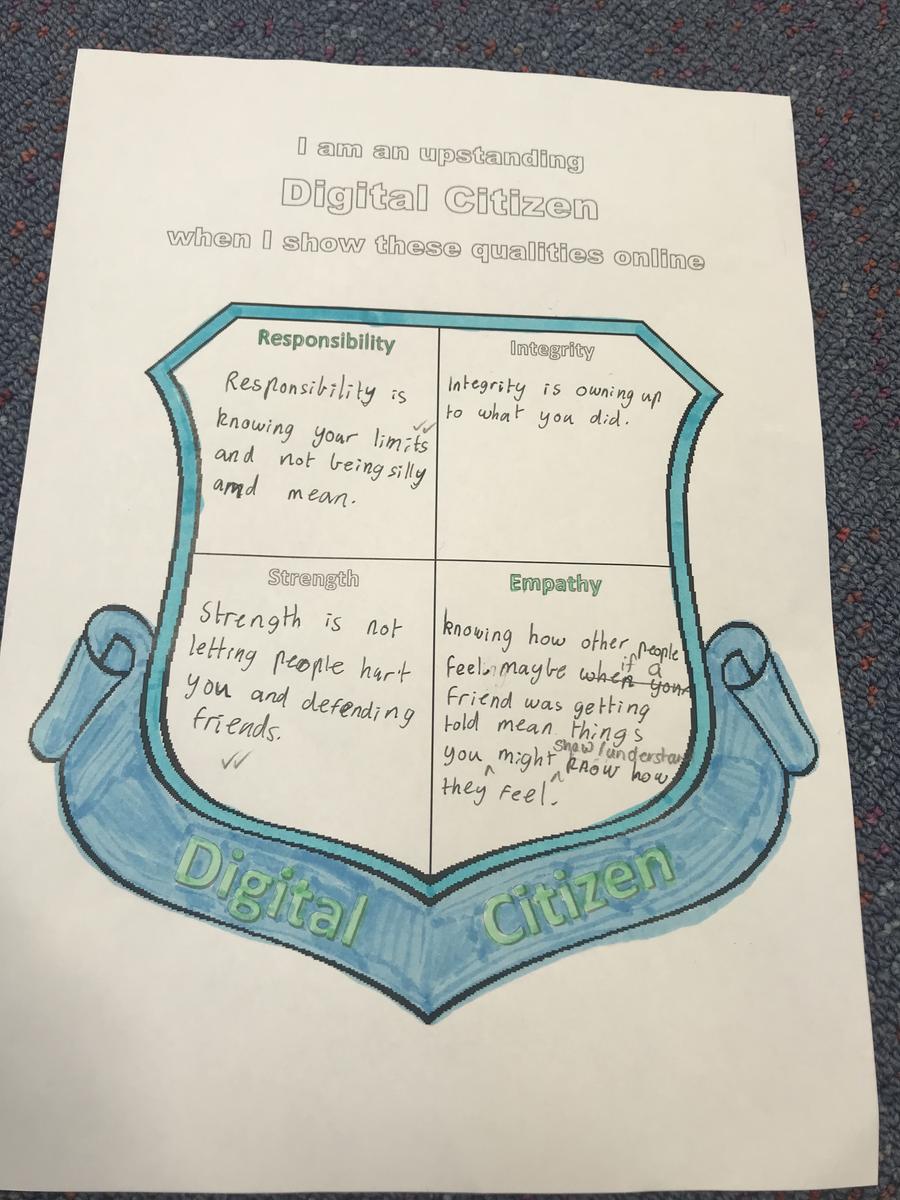 I am an upstanding
Digital Citizen
when I show these qualities online
Responsibility
Responsibility is
knowing your limits
and not being silly
amd mean.
Integrity
Integrity is owning up
to what you did.
Strength
Strength is not
letting people hurt
you and defending
friends.
Empathy
knowing how other people
feel. maybe when your if a
friend was getting
told mean things
you might show/understand know how
they feel.
Digital Citizen